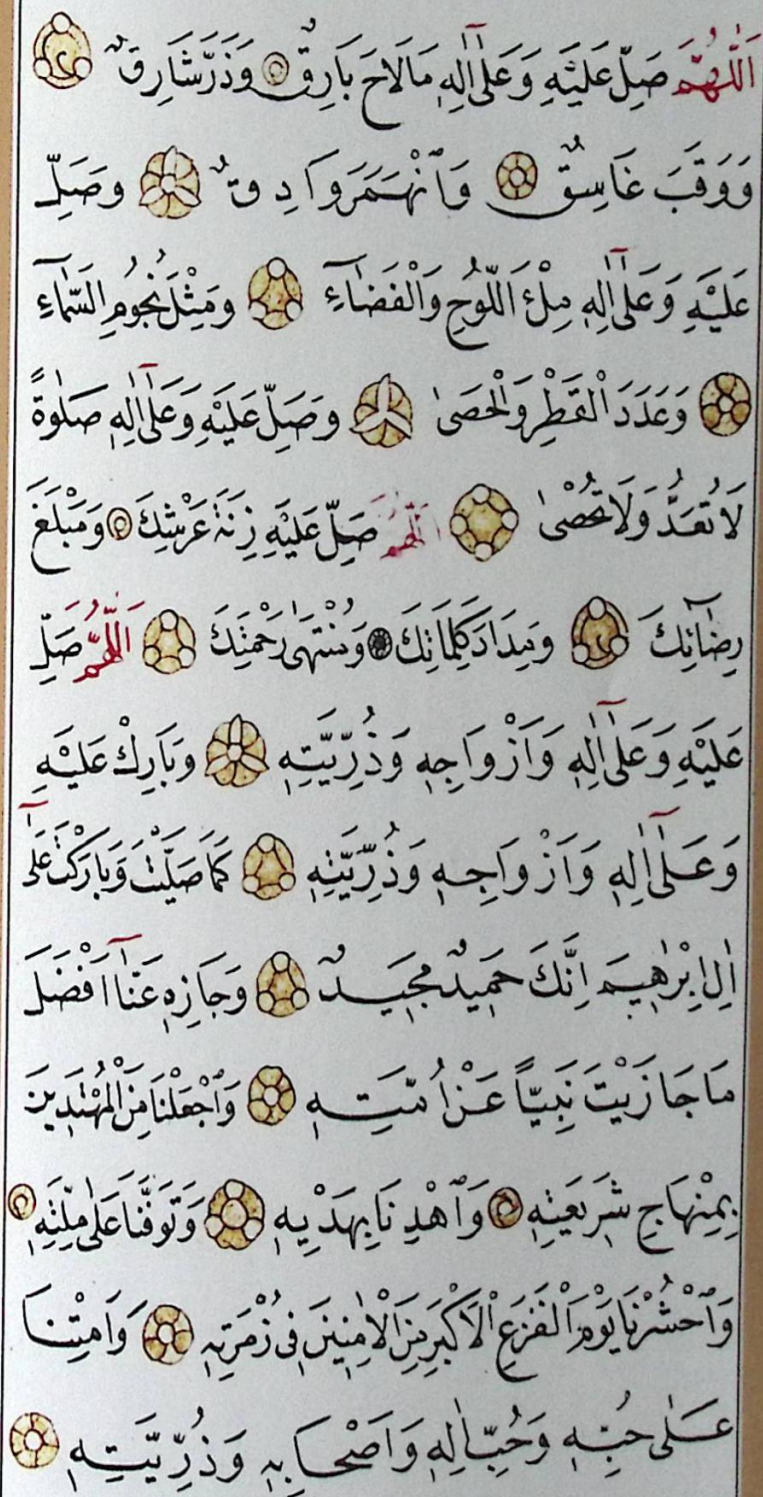 اَللّٰهُمَّ صَلِّ عَلَيْهِ وَعَلٰٓى اٰلِهٖ مَالَاحَ بَارِقٌ وَذَرَّ شَارِقٌ
وَوَقَبَ غَاسِقٌ وَٱنْهَمَرَ وَادِقٌ وَصَلِّ
عَلَيْهِ وَعَلٰٓى اٰلِهٖ مِلْءَ اللَّوْحِ وَالْفَضَاءِ وَمِثْلَ نُجُومِ السَّمَاءِ
وَعَدَدَ الْقَطْرِ وَالْحَصٰى وَصَلِّ عَلَيْهِ وَعَلٰٓى اٰلِهٖ صَلٰوةً
لَا تُعَدُّ وَلَا تُحْصٰى اَللّٰهُمَّ صَلِّ عَلَيْهِ زِنَةَ عَرْشِكَ وَمَبْلَغَ
رِضَائِكَ وَمِدَادَ كَلِمَاتِكَ وَمُنْتَهٰى رَحْمَتِكَ اَللّٰهُمَّ صَلِّ
عَلَيْهِ وَعَلٰٓى اٰلِهٖ وَاَزْوَاجِهٖ وَذُرِّيَّتِهٖ وَبَارِكْ عَلَيْهِ
وَعَلٰٓى اٰلِهٖ وَاَزْوَاجِهٖ وَذُرِّيَّتِهٖ كَمَا صَلَّيْتَ وَبَارَكْتَ عَلٰٓى
اٰلِ اِبْرٰهِيمَ اِنَّكَ حَمِيدٌ مَجِيدٌ وَجَازِهٖ عَنَّٓا اَفْضَلَ
مَا جَازَيْتَ نَبِيًّا عَنْ اُمَّتِهٖ وَٱجْعَلْنَا مِنَ الْمُهْتَدِينَ
بِمِنْهَاجِ شَرِيعَتِهٖ وَٱهْدِنَا بِهَدْيِهٖ وَتَوَفَّنَا عَلٰى مِلَّتِهٖ
وَٱحْشُرْنَا يَوْمَ الْفَزَعِ الْاَكْبَرِ مِنَ الْاٰمِنِينَ فِى زُمْرَتِهٖ وَاَمِتْنَا
عَلٰى حُبِّهٖ وَحُبِّ اٰلِهٖ وَاَصْحَابِهٖ وَذُرِّيَّتِهٖ